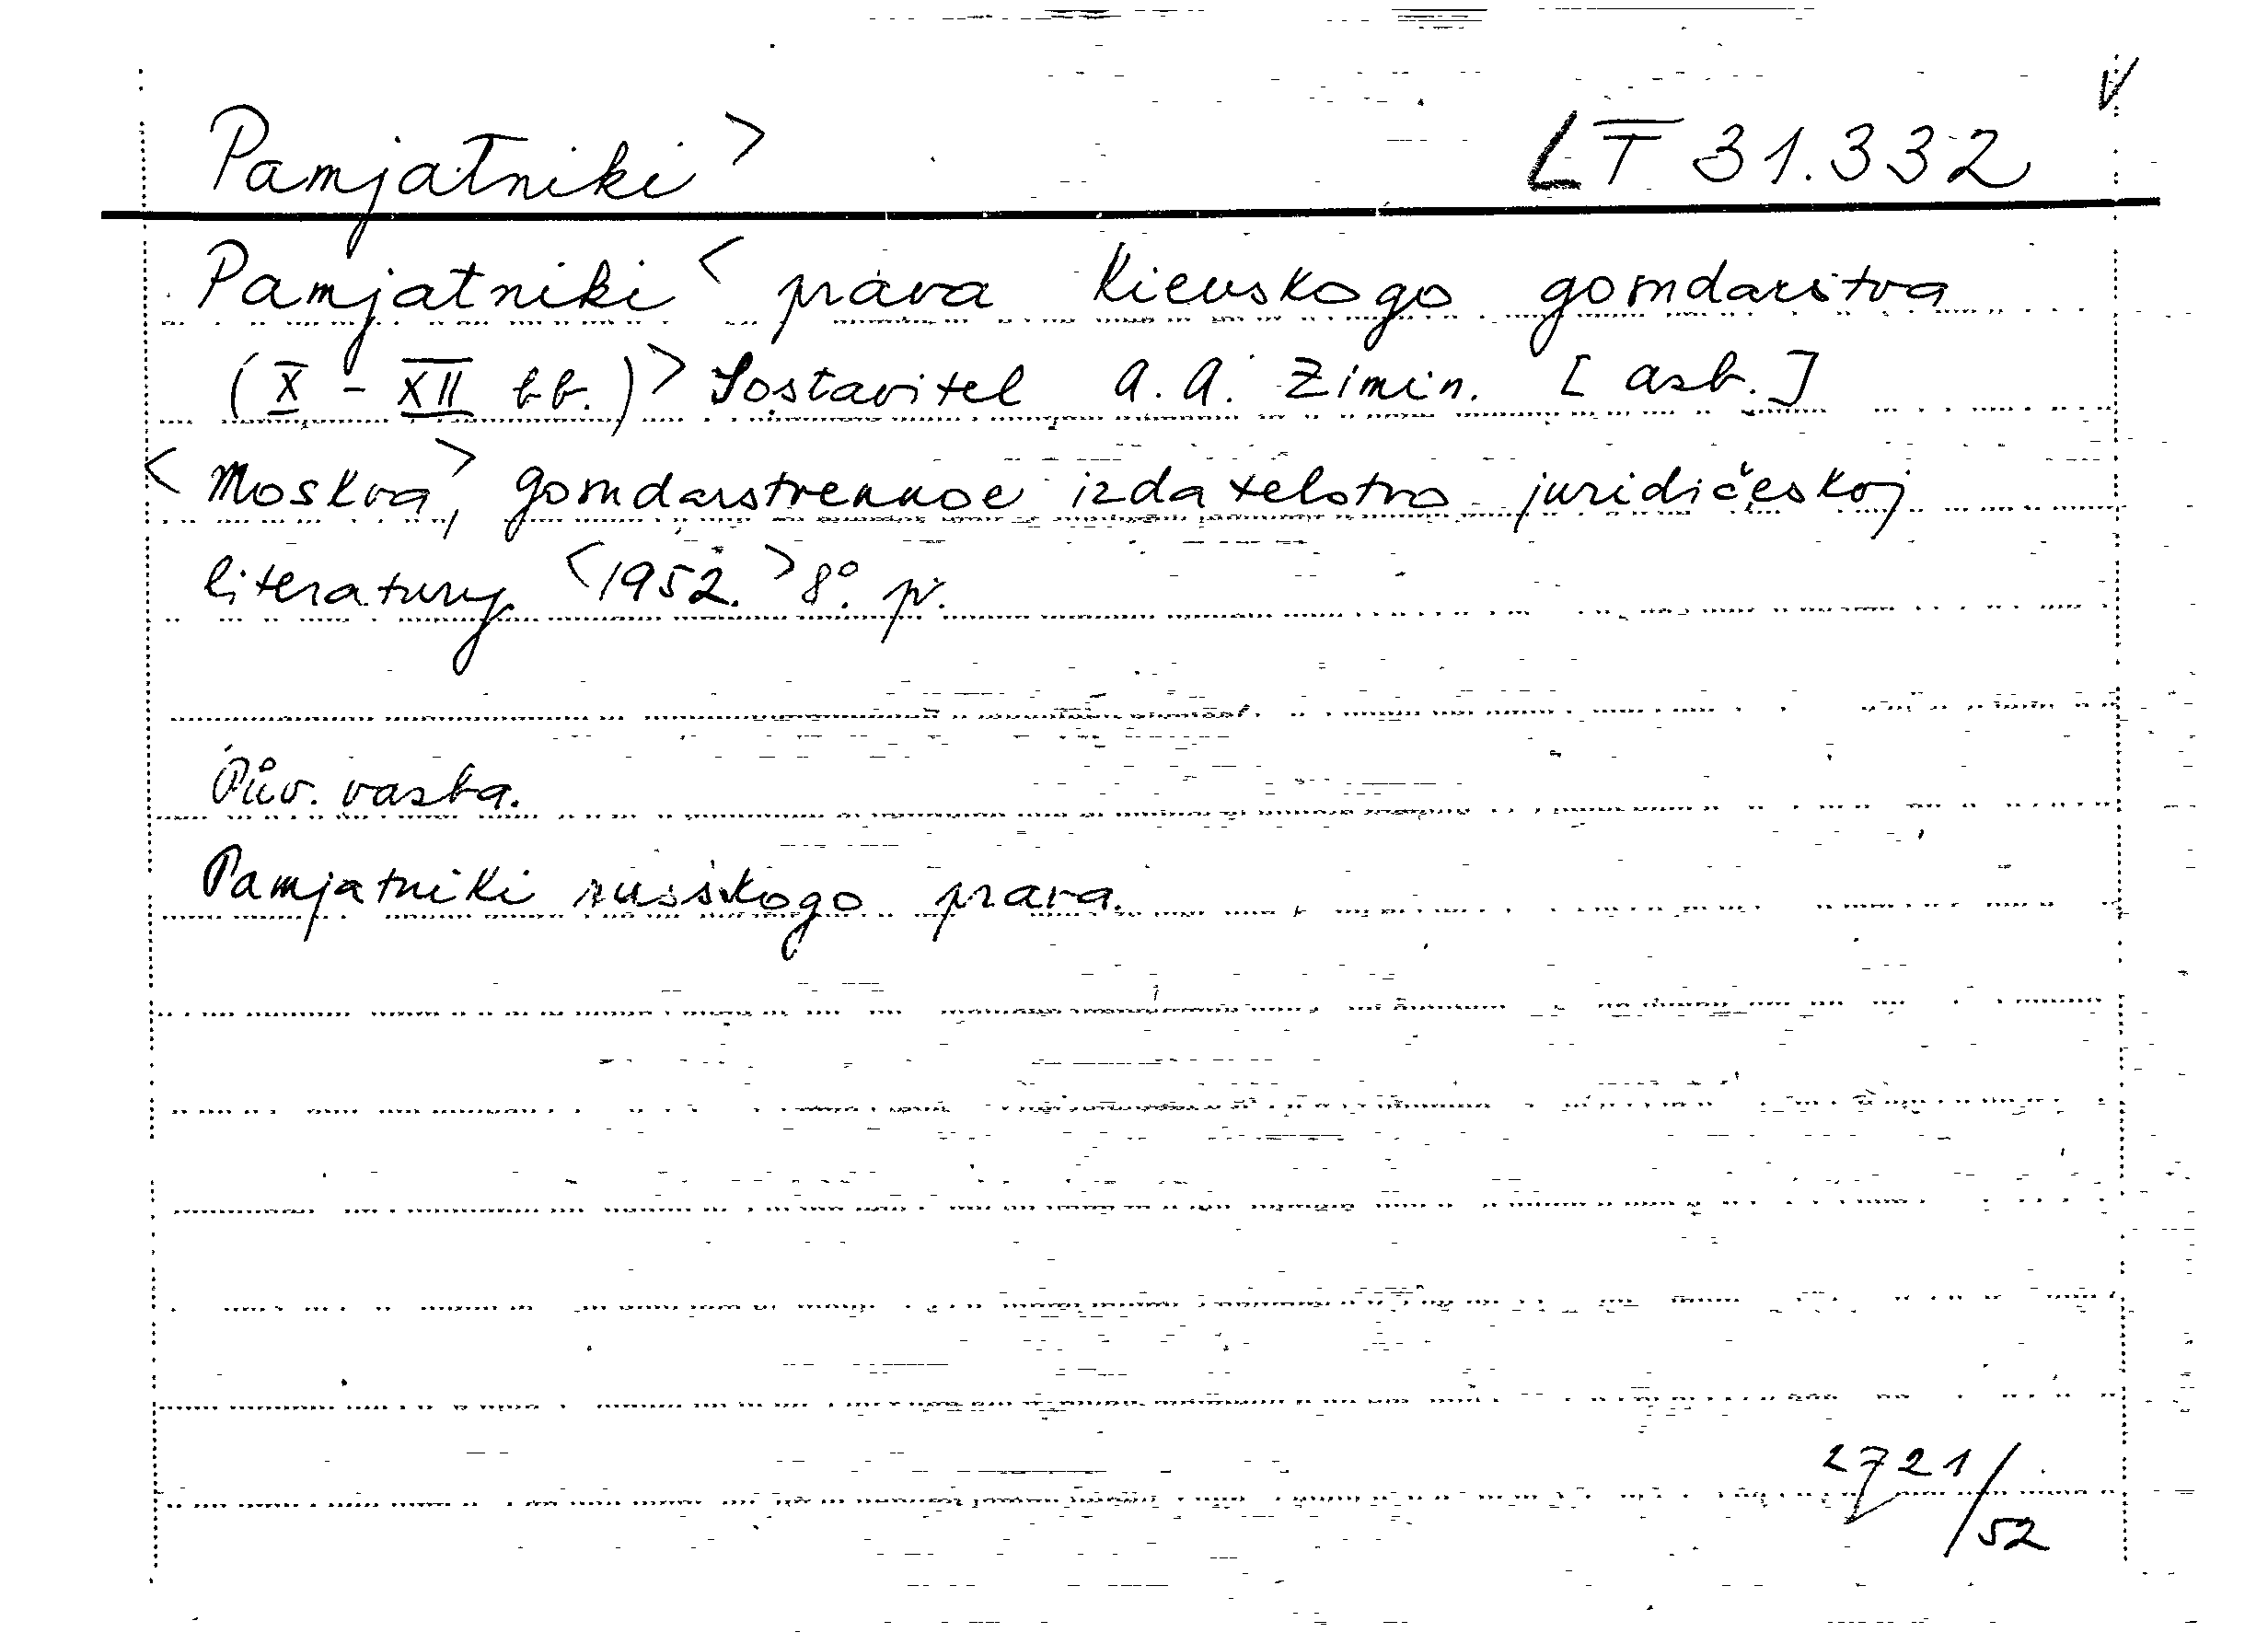 V
Pamjatniki > LT 31.332
Pamjatniki < prava Kievskogo gosudarstva
(X - XII vv.) > Sostavitel A. A. Zimin. [a sb.]
< Moskva, > gosudarstvennoe izdatelstvo juridičeskoj
literatury < 1952. > 8°. pv.
Pův. vazba.
Pamjatniki russkogo prava.
2721/52